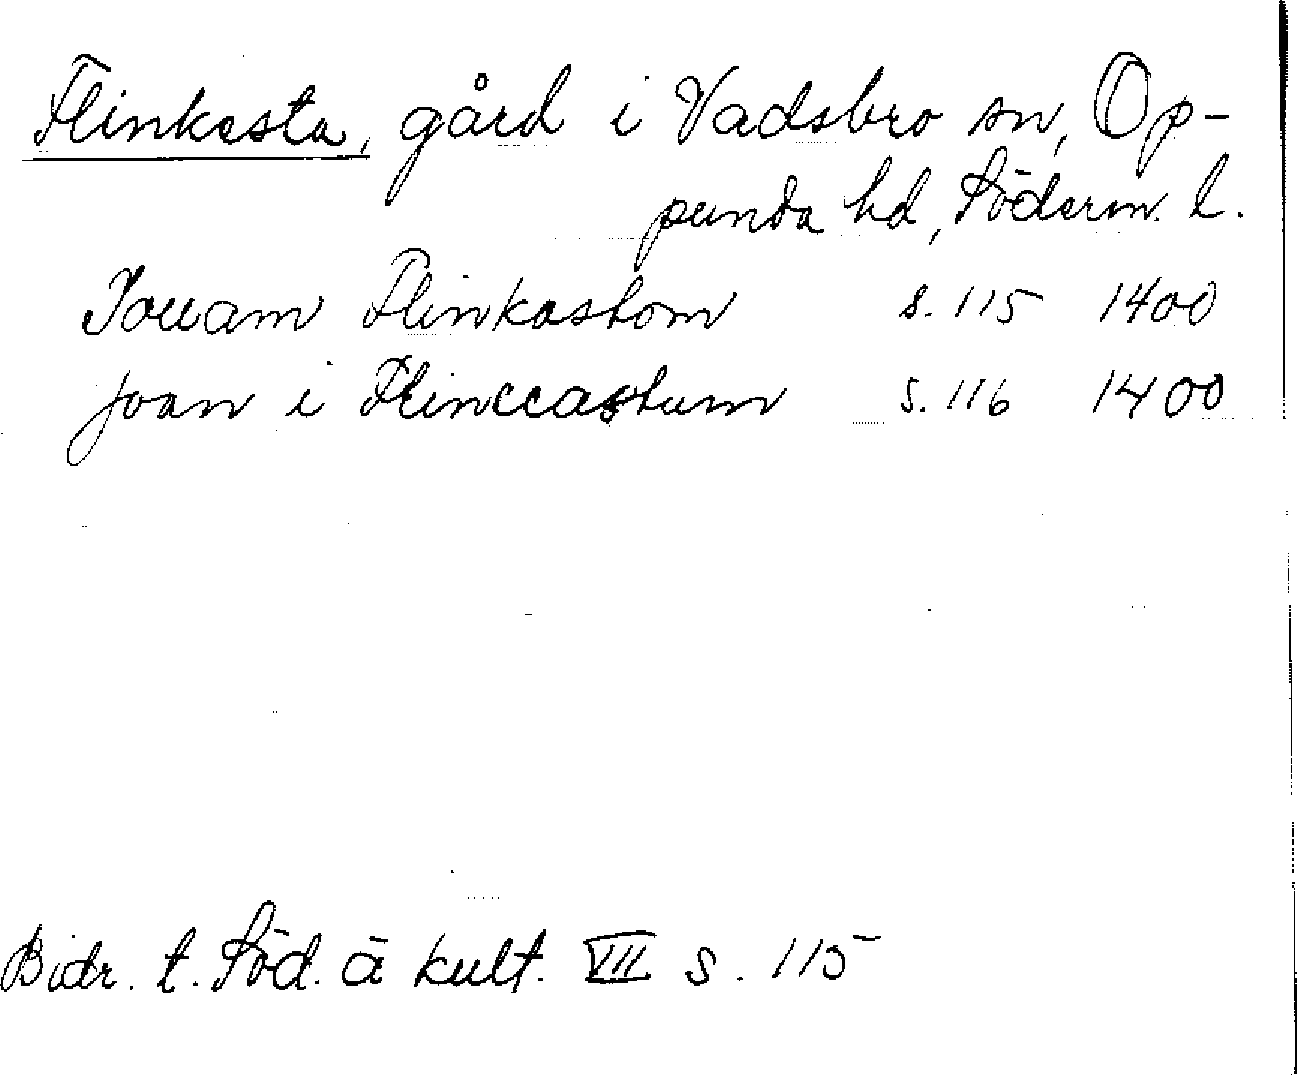 Flinkesta, gård i Vadsbro sn, Op-
punda hd, Söderm. l.
Jouam Flinkastom s. 115 1400
Joan i Flinccastum s. 116 1400
Bidr. t. Söd. ä kult. VII s. 115